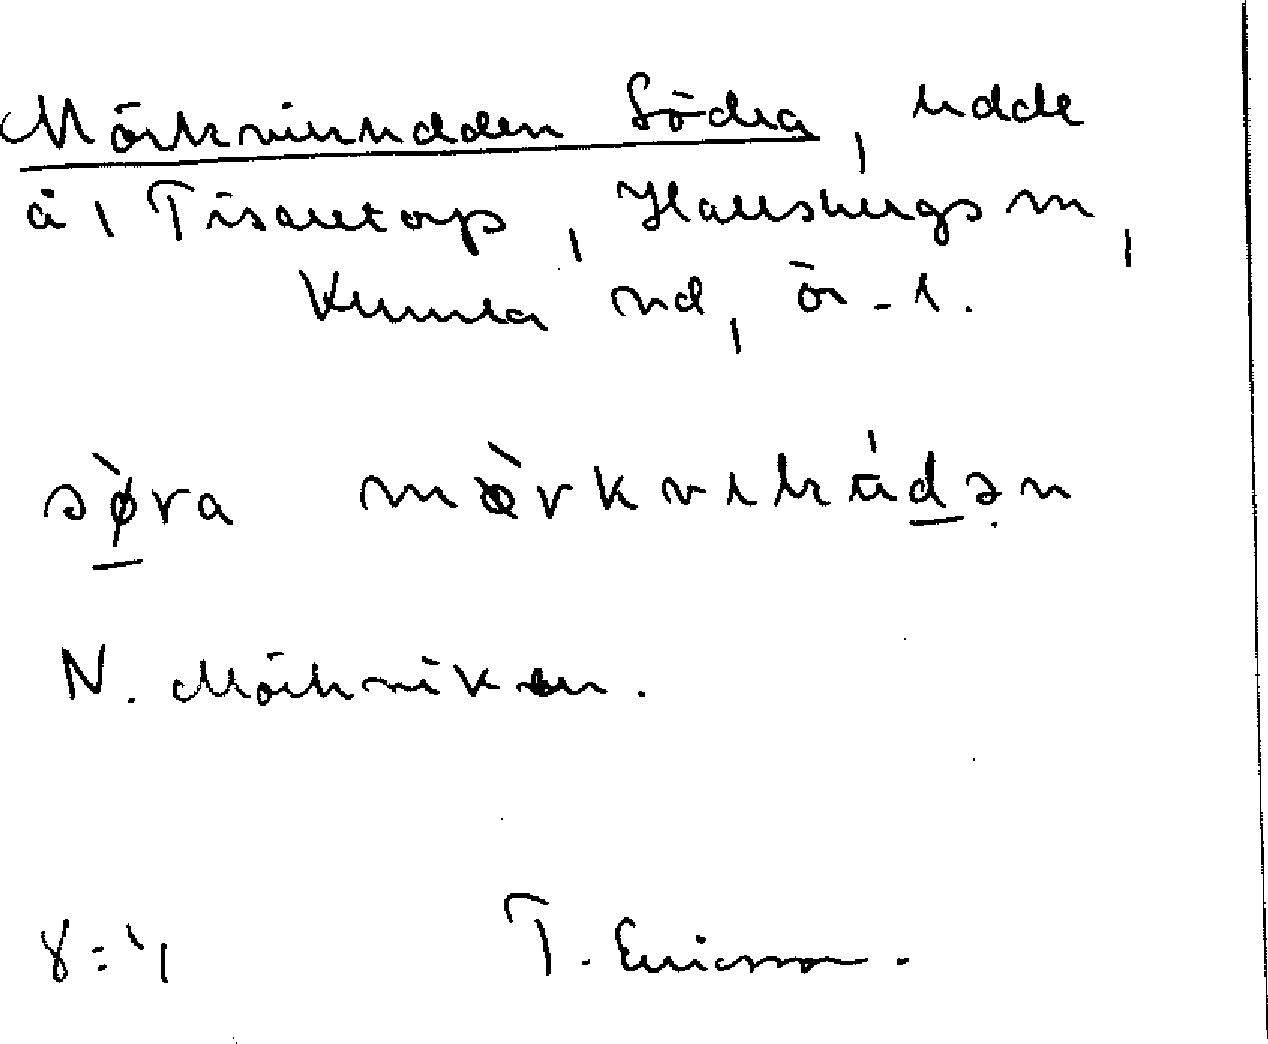 Mörkviksudden Södra, udde
å, Tisaretorp, Hallsbergs sn,
Kumla hd, ör-l.
søra mørkvıksu̇dən
N. Mörkviken.
T. Ericsson.